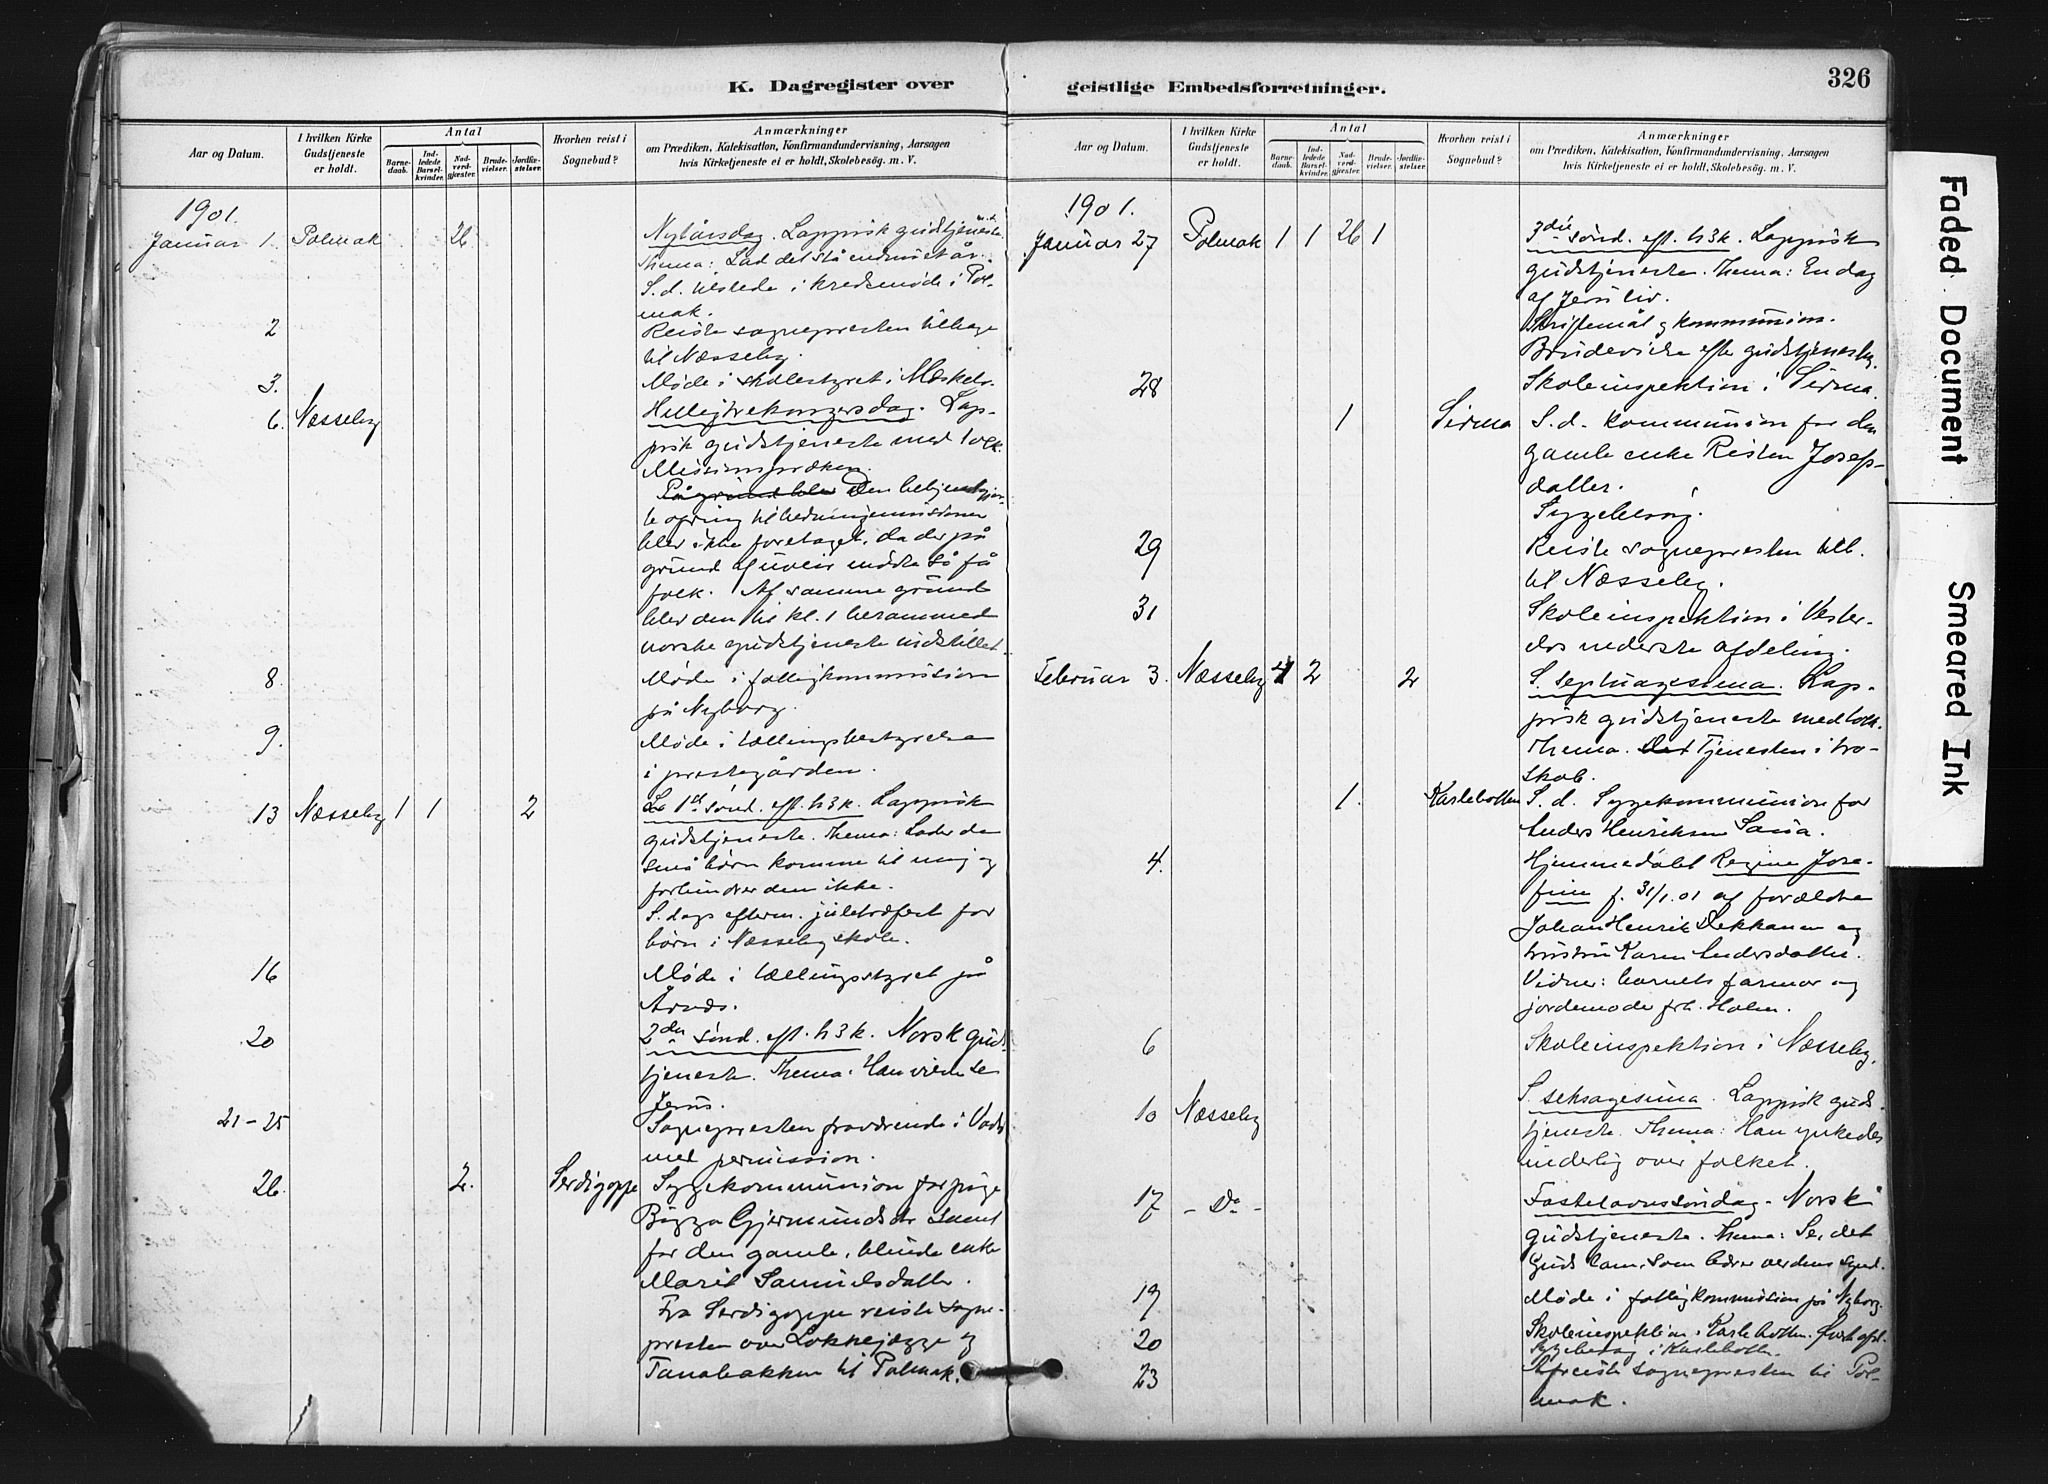 K. Dagregister over
Aar og Datum.
I hvilken Kirke Gudstjeneste er holdt.
Antal
Barne-daab.
Ind-ledede Barsel-kvinder.
Nad-verd-gjester.
Brude-vielser.
Jordfæ-stelser.
Hvorhen reist i Sognebud?
Anmærkninger
om Prædiken, Katekisation, Konfirmandundervisning, Aarsagen
hvis Kirketjeneste ei er holdt, Skolebesög. m. V.
1901.
Januar 1. Polmak 26 Nytårsdag. Lappisk gudstjeneste.
Thema: Lad det stå endnu et år.
S.d. tilstede i kredsmøde i Pol-
mak.
2 Reiste sognepresten tilbage
til Næsseby.
3. Møde i skolestyret i Meskelv.
6. Næsseby Helligtrekongersdag. Lap-
pisk gudstjeneste med tolk.
Missionspræken.
På grund blev Den
ofring til hedningemissionen
blev ikke foretaget, da der på
grund af uveir mødte så få
folk. Af samme grund
blev den til kl. 1 berammede
norske gudstjeneste indstillet.
8. Møde i fattigkommissionen
på Nyborg.
9. Møde i tællingsbestyrelse
i prestegården.
13 Næsseby 1 1 2 1st sønd. eft. h3k. Lappisk
gudstjeneste. Thema: Lader de
små børn komme til mig og
forhindrer dem ikke.
S. dags efterm. juletræfest for
børn i Næsseby skole.
16 Møde i tællingsstyret på
Årnæs.
20 2den sønd. eft. h3k. Norsk guds-
tjeneste. Thema: Han vilde se
Jesus.
21-25 Sognepresten fraværende i Vadsø
med permission.
26. 2. Serdigoppe Sygekommunion for pige
Bigga Gjermundsdr samt
for den gamle, blinde enke
Marit Samuelsdatter.
Fra Serdigoppe reiste sogne-
presten over Lokkejægge og
Tanabakken til Polmak.
geistlige Embedsforretninger.
326
Aar og Datum.
I hvilken Kirke Gudstjeneste er holdt.
Antal
Barne-daab.
Ind-ledede Barsel-kvinder.
Nad-verd-gjester.
Brude-vielser.
Jordfæ-stelser.
Hvorhen reist i Sognebud?
Anmærkninger
om Prædiken, Katekisation, Konfirmandundervisning, Aarsagen
hvis Kirketjeneste ei er holdt, Skolebesög. m. V.
1901.
Januar 27 Polmak 1 1 26 1 3die sønd. eft. h3k. Lappisk
gudstjeneste. Thema: En dag
af Jesu liv.
Skriftemål og kommunion.
Brudevielse efter gudstjenesten.
28 Skoleinspektion i Sirma.
1 Sirma S.d. kommunion for den
gamle enke Risten Josep-
datter.
Sygebesøg.
29 Reiste sognepresten tilb.
til Næsseby.
31 Skoleinspektion i Vester-
elvs nederste afdeling.
Februar 3. Næsseby 4 2 2 S. septuagesima. Lap-
pisk gudstjeneste med tolk.
Thema. Det Tjenesten i tro-
skab.
1. Karlebotten S. d. Sygekommunion for
Anders Henriksen Saua.
4. Hjemmedøbt Regine Jose-
fine f. 31/1. 01 af forældre
Johan Henrik Dekkanen og
hustru Karen Andersdatter.
Vidner: barnets farmor og
jordemoder frk. Holm.
6 Skoleinspektion i Næsseby.
10 Næsseby S. seksagesima. Lappisk guds-
tjeneste. Thema: Han ynkedes
inderlig over folket.
17 - Do - Fastelavnssøndag. Norsk
gudstjeneste. Thema: Se, det
Guds lam, som bærer verdens synd.
19 Møde i fattigkommission på Nyborg.
20 Skoleinspektion i Karlebotten.
Sygebesøg i Karlebotten.
23 Afreiste sognepresten til Pol-
mak.
Faded Document
Smeared Ink